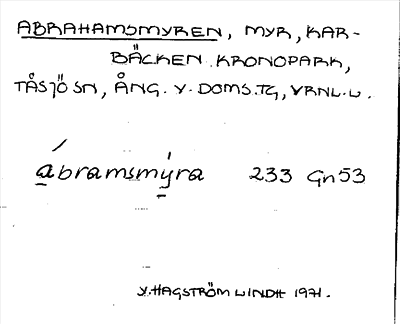 ABRAHAMSMYREN, MYR, KAR-
BÄCKEN KRONOPARK,
TÅSJÖ SN, ÅNG. V. DOMS.TG, VRNL.L.
ábramsmýra 233 Gn53
Y.HAGSTRÖM LINDH 1971.